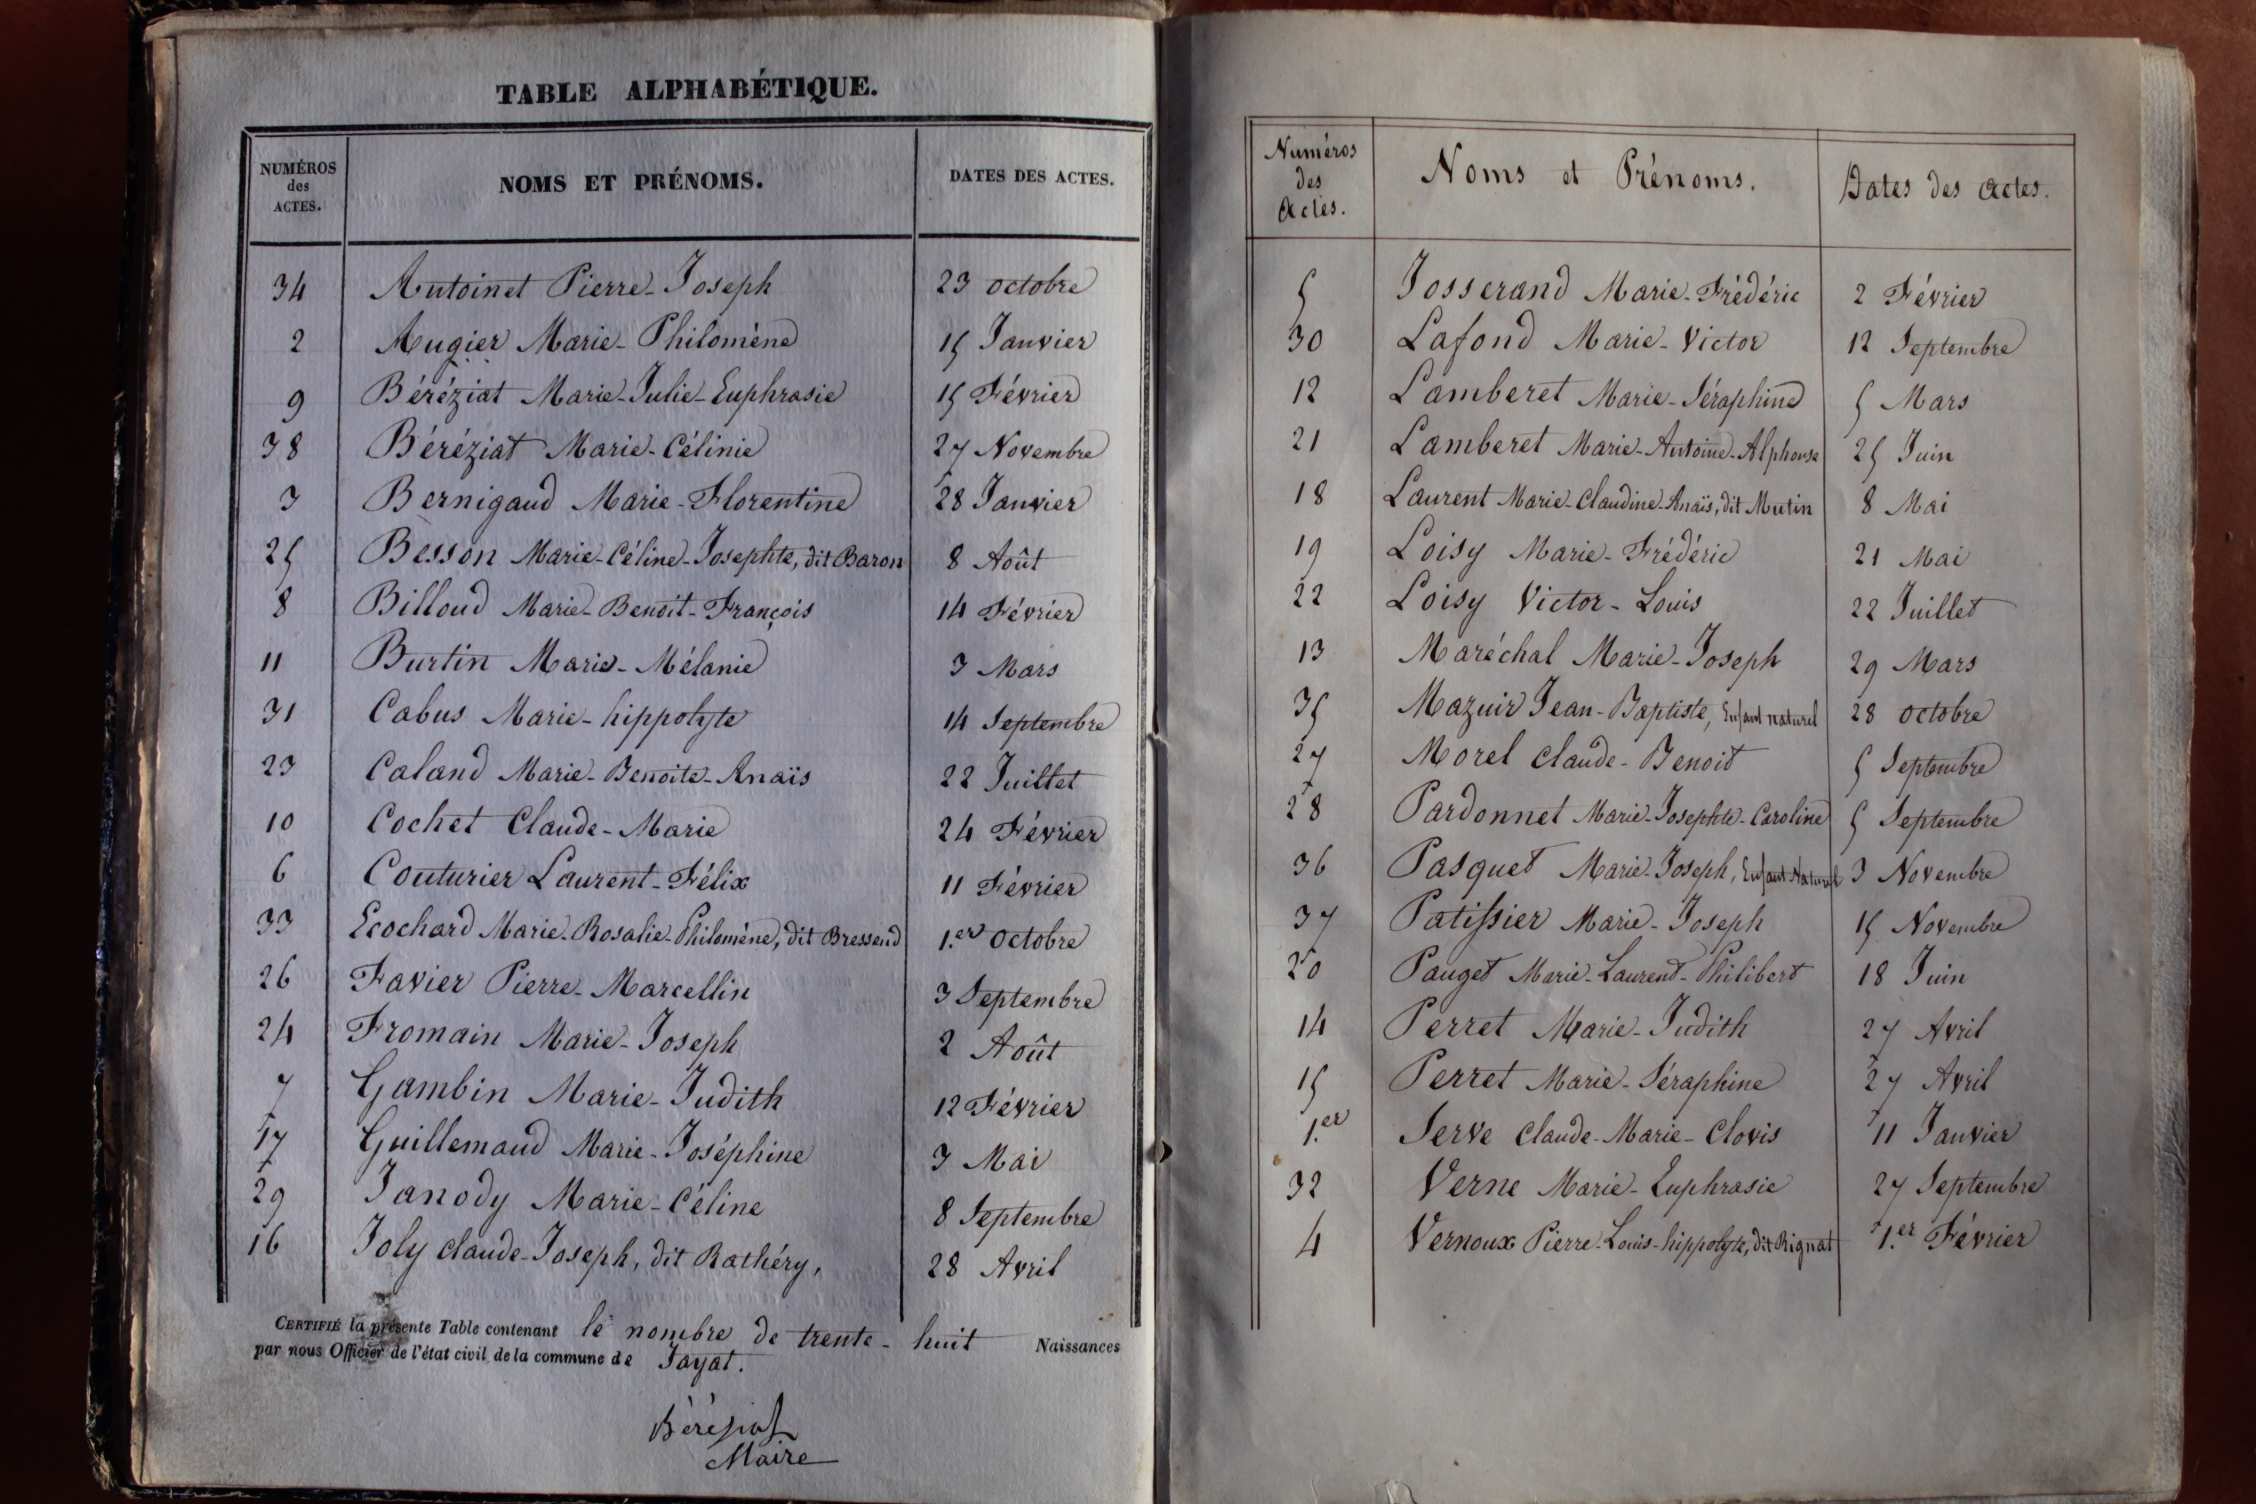 TABLE ALPHABÉTIQUE.
NUMÉROS des ACTES. NOMS ET PRÉNOMS. DATES DES ACTES.
34 Antoinet Pierre-Joseph 23 octobre
2 Augier Marie-Philomène 15 Janvier
9 Béréziat Marie-Julie-Euphrasie 15 Février
38 Béréziat Marie-Célinie 27 Novembre
3 Bernigaud Marie-Florentine 28 Janvier
25 Besson Marie-Céline-Josephte, dit Baron 8 Août
8 Billoud Marie-Benoit-François 14 Février
11 Burtin Marie-Mélanie 3 Mars
31 Cabus Marie-hippolyte 14 Septembre
23 Caland Marie-Benoite-Anaïs 22 Juillet
10 Cochet Claude-Marie 24 Février
6 Couturier Laurent-Félix 11 Février
33 Ecochard Marie-Rosalie-Philomène, dit Bressend 1.er octobre
26 Favier Pierre-Marcellin 3 Septembre
24 Fromain Marie-Joseph 2 Août
7 Gambin Marie-Judith 12 Février
17 Guillemaud Marie-Joséphine 3 Mai
29 Janody Marie-Céline 8 Septembre
16 Joly claude-Joseph, dit Rathéry, 28 Avril
CERTIFIÉ la présente Table contenant le nombre de trente-huit Naissances
par nous Officier de l'état civil de la commune de Jayat.
Béréziat
Maire
Numéros des Actes. Noms et Prénoms. Dates des Actes.
5 Josserand Marie-Frédéric 2 Février
30 Lafond Marie-Victor 12 Septembre
12 Lamberet Marie-Séraphine 5 Mars
21 Lamberet Marie-Antoine-Alphonse 25 Juin
18 Laurent Marie-Claudine-Anaïs, dit Mutin 8 Mai
19 Loisy Marie-Frédéric 21 Mai
22 Loisy Victor-Louis 22 Juillet
13 Maréchal Marie-Joseph 29 Mars
35 Mazuir Jean-Baptiste, Enfant naturel 28 octobre
27 Morel Claude-Benoit 5 Septembre
28 Pardonnet Marie-Josephte-Caroline 5 Septembre
36 Pasquet Marie-Joseph, Enfant Naturel 3 Novembre
37 Patissier Marie-Joseph 15 Novembre
20 Pauget Marie-Laurent-Philibert 18 Juin
14 Perret Marie-Judith 27 Avril
15 Perret Marie-Séraphine 27 Avril
1.er Serve Claude-Marie-Clovis 11 Janvier
32 Verne Marie-Euphrasie 27 Septembre
4 Vernoux Pierre-Louis-hippolyte, dit Rignat 1.er Février